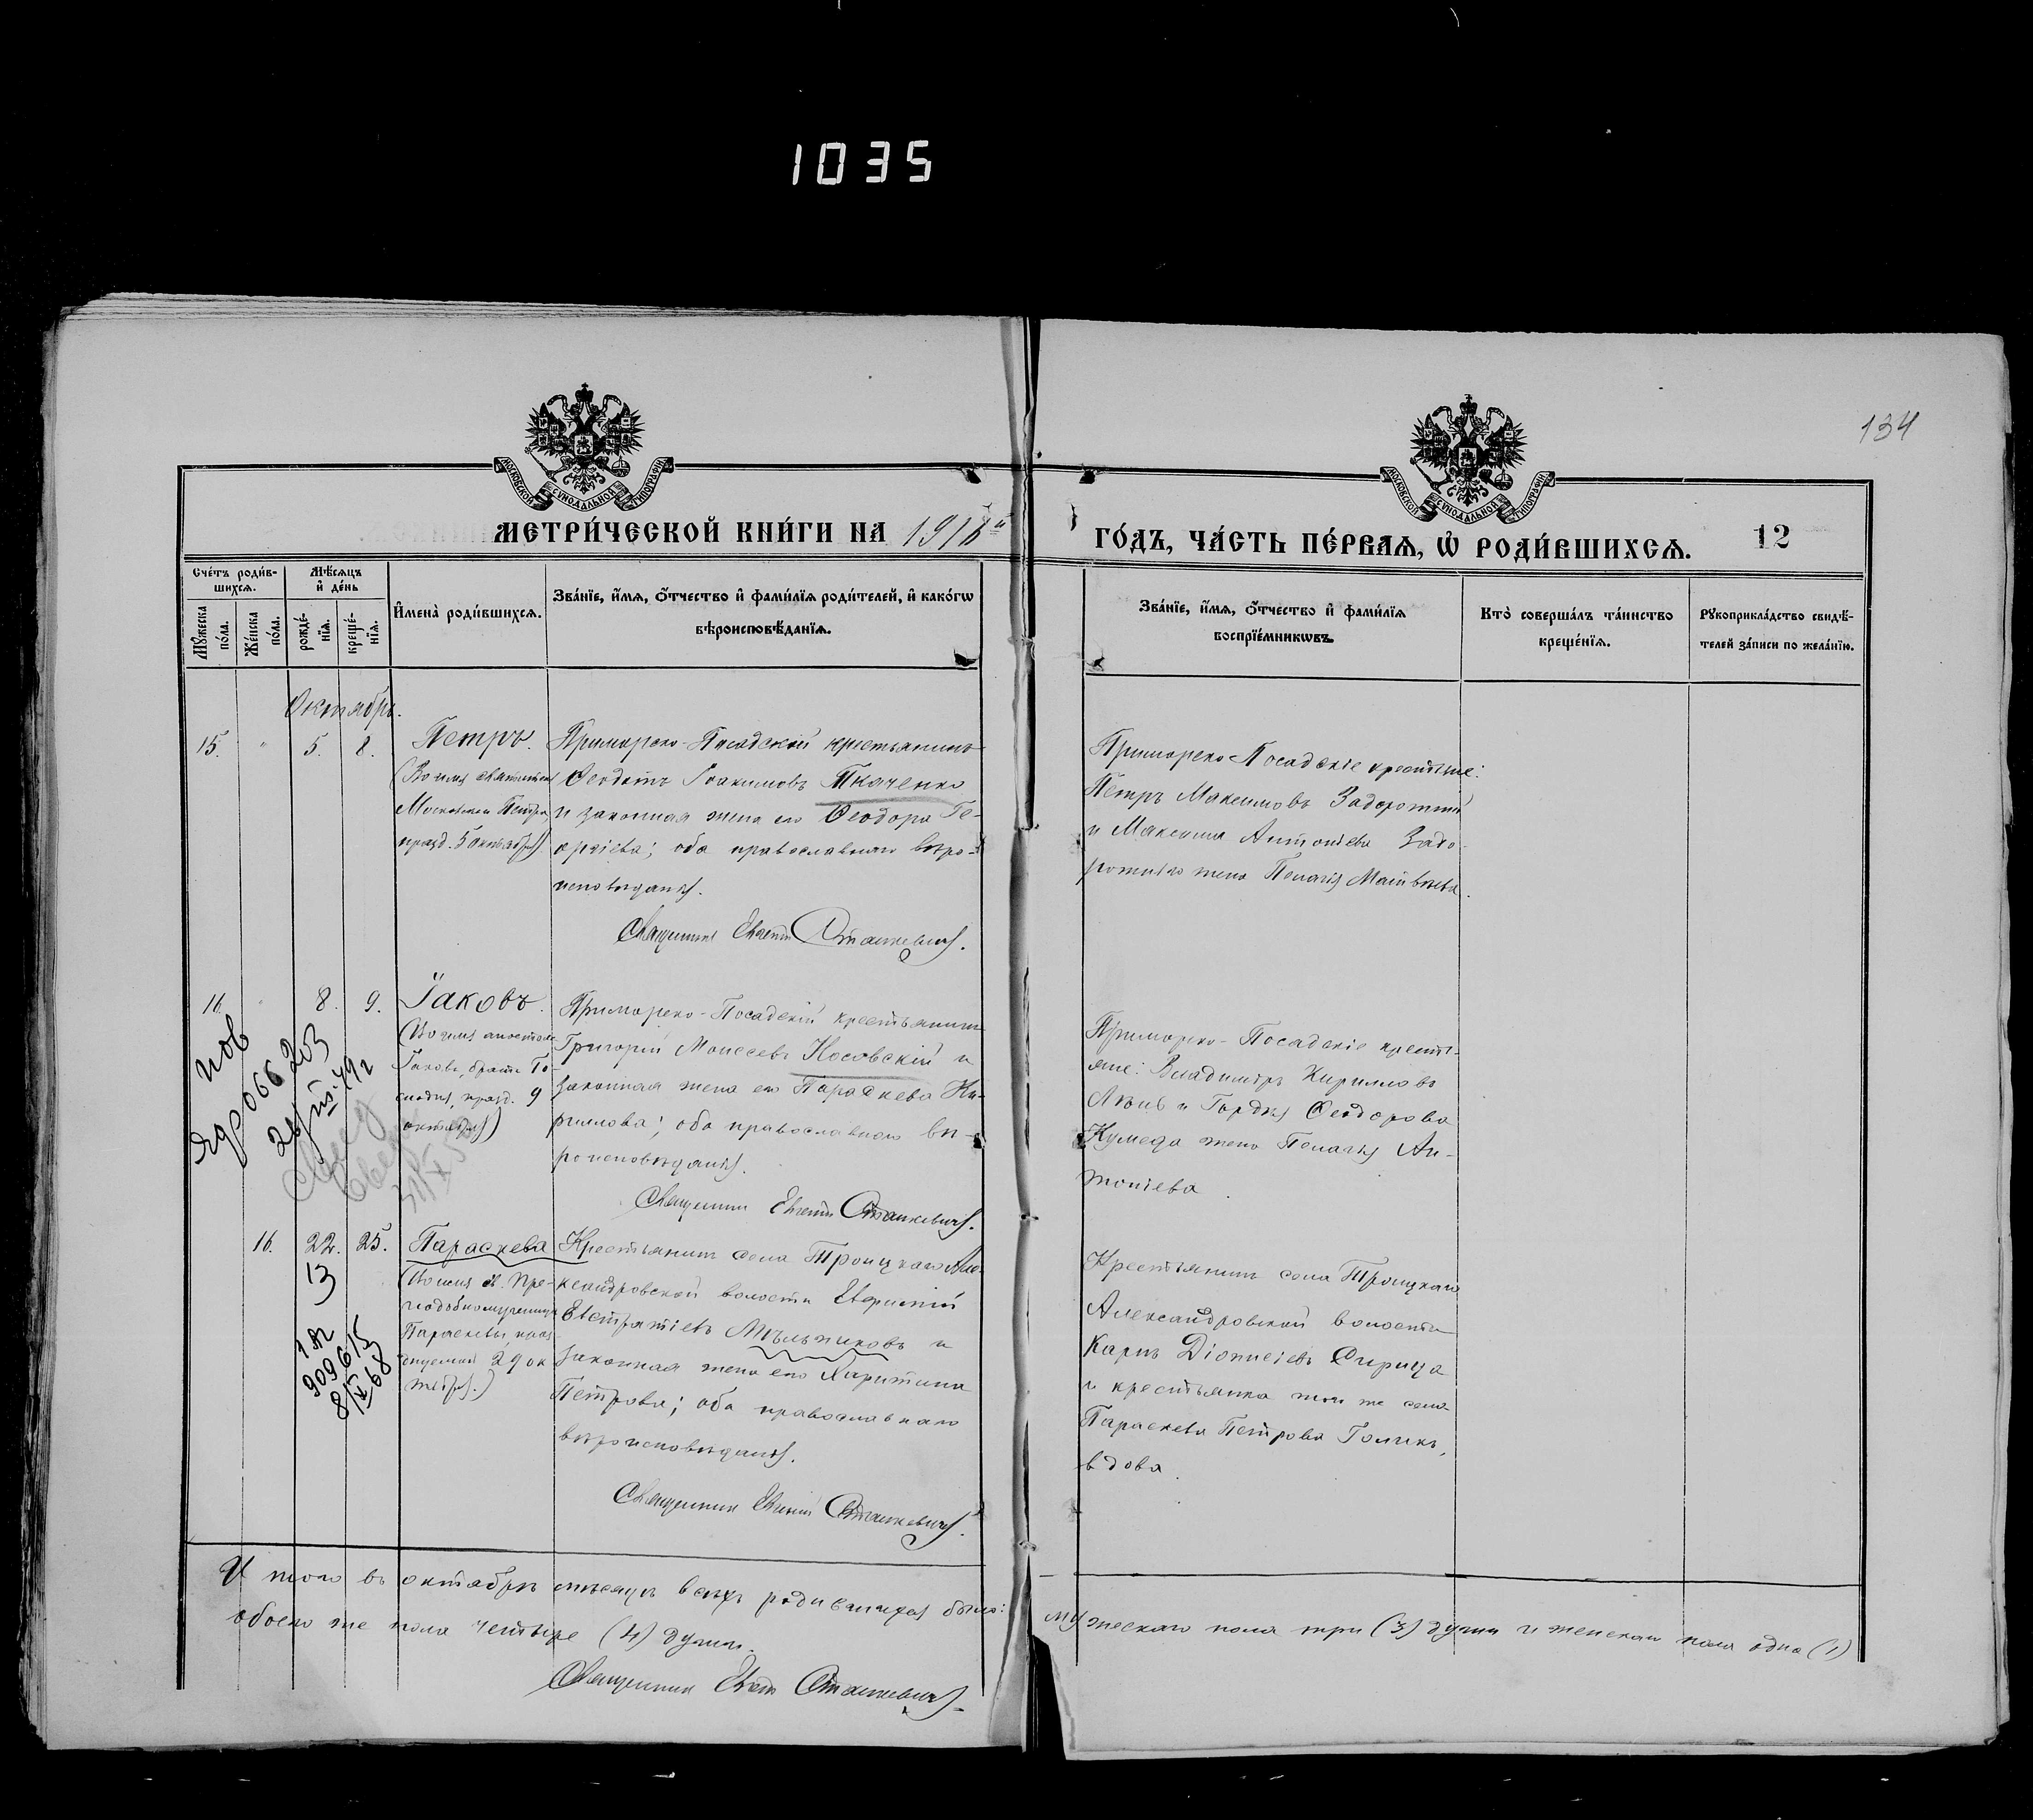 1035
134
МОСКОВСКОЙ СѴНОДАЛЬНОЙ ТИПОГРАФІИ
МОСКОВСКОЙ СѴНОДАЛЬНОЙ ТИПОГРАФІИ
МЕТРИ́ЧЕСКОЙ КНИ́ГИ НА 1918й
ГО́ДЪ, ЧА́СТЬ ПЕ́РВАѦ, Ѡ҆ РОДИ́ВШИХСѦ. 12
Сче́тъ роди́в-
шихсѧ.
Мѣ́сѧцъ
и҆ де́нь
Мꙋ́жеска
по́ла.
Же́нска
по́ла.
рожде́-
нїѧ.
креще́-
нїѧ.
И҆мена̀ роди́вшихсѧ.
Зва́нїе, и҆́мѧ, ѻ҆́тчество и҆ фами́лїѧ роди́телей, и҆ како́гѡ
вѣроисповѣ́данїѧ.
Зва́нїе, и҆́мѧ, ѻ҆́тчество и҆ фами́лїѧ
воспрїе́мникѡвъ.
Кто̀ соверша́лъ та́инство
креще́нїѧ.
Рꙋкоприкла́дство свидѣ́-
телей за́писи по жела́нїю.
Октябрь.
15. " 5. 8. Петръ.
(Во имя святителя
Московскаго Петра,
празд. 5 октября)
Приморско-Посадскій крестьянинъ
Ѳеодотъ Іоакимовъ Ткаченко
и законная жена его Ѳеодора Ге-
оргіева; оба православнаго вѣро-
исповѣданія.
Священникъ Евгеній Станкевичъ.
Приморско-Посадскіе крестьяне:
Петръ Максимовъ Задорожній
и Максима Антоніева Задо-
рожнаго жена Пелагія Матѳѣева.
16. 8. 9. Іаковъ.
(Во имя апостола
Іакова, брата Го-
сподня, празд. 9
октября)
Приморско-Посадскій крестьянинъ
Григорій Моисеевъ Косовскій и
законная жена его Параскева Ки-
риллова; оба православнаго вѣ-
роисповѣданія.
Священникъ Евгеній Станкевичъ.
Приморско-Посадскіе кресть-
яне: Владиміръ Кирилловъ
и Гордія Ѳеодорова
жена Пелагія Ан-
тоніева.
пов
066203
16. 22. 25. Параскева
13
909615
8/IV 68
(Во имя св. Пре-
подобномученицы
Параскевы, праз-
днуемой 29 ок
тября.)
Крестьянинъ села Троицкаго Але-
ксандровской волости
Евстратіевъ Мѣльниковъ и
законная жена его Харитина
Петрова; оба православнаго
вѣроисповѣданія.
Священникъ Евгеній Станкевичъ.
Крестьянинъ села Троицкаго
Александровской волости
Карпъ Діонисіевъ Сирица
и крестьянка того же села
Параскева Петрова Голикъ,
вдова.
Итого въ октябрѣ мѣсяцѣ всѣхъ родившихся было: мужескаго пола три (3) души и женскаго пола одна (1)
обоего же пола четыре (4) души.
Священникъ Евгеній Станкевичъ.